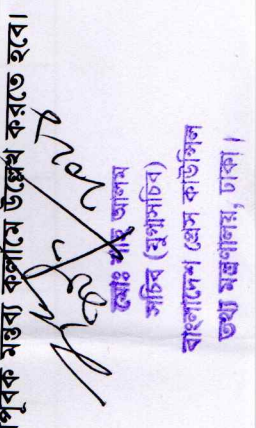 পূর্বক মন্তব্য কলামে উল্লেখ করতে হবে।
মোঃ শাহ আলম
সচিব (যুগ্মসচিব)
বাংলাদেশ প্রেস কাউন্সিল
তথ্য মন্ত্রণালয়, ঢাকা।